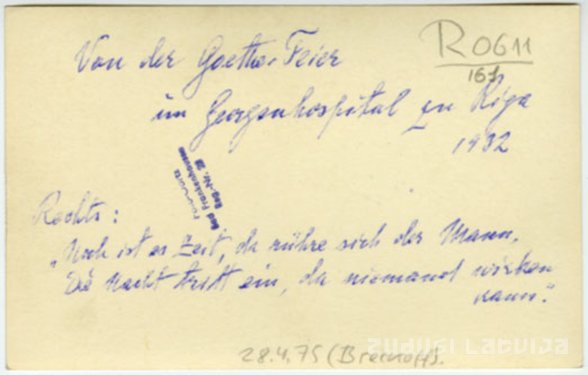 Von der Goethe-Feier
im Georgenhospital zu Riga
1932
R0611
Bad Frankenhausen
Reg.-Nr. 28
Rechts:
"Noch ist es Zeit, da rühre sich der Mann,
Die Nacht tritt ein, da niemand wirken
kann".
28.4.75 (
ZUDUSI LATVIJA